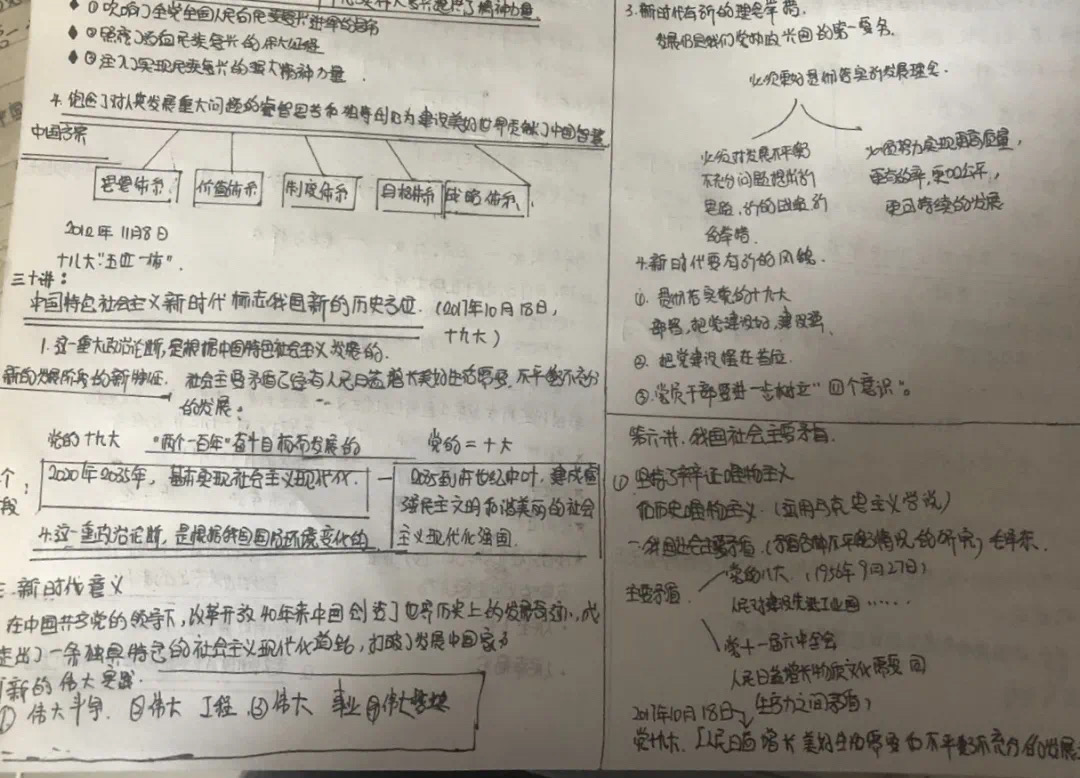 ① 吹响了全党全国人民向民族复兴进军的号角
② 照亮了迈向民族复兴的伟大征程
③ 注入了实现民族复兴的强大精神力量.
4. 饱含了对人类发展重大问题的睿智思考和独特创见为建设美好世界贡献了中国智慧
中国方案
思想体系. 价值体系 制度体系 目标体系 战略体系.
2012年11月8日
十八大"五位一体".
三十讲:
中国特色社会主义新时代标志我国新的历史方位. (2017年10月18日,
十九大)
1. 这一重大政治论断,是根据中国特色社会主义发展的.
新的发展阶段的新特征. 社会主要矛盾已经有人民日益增长美好生活需要,不平衡不充分
的发展.
党的十九大 "两个一百年"奋斗目标而发展的 党的二十大
个
段
2020年2035年,基本实现社会主义现代化.
2035到本世纪中叶,建成富
强民主文明和谐美丽的社会
主义现代化强国.
4.这一重政治论断,是根据我国国际环境变化的
三.新时代意义
在中国共产党的领导下,改革开放40年来中国创造了世界历史上的发展奇迹,成
走出了一条独具特色的社会主义现代化道路,打破了发展中国家
新的伟大实践.
① 伟大斗争. ②伟大工程. ③伟大事业 ④伟大梦想
3. 新时代有新的理念举措.
发展仍是我们党执政兴国的第一要务.
必须更好贯彻落实新发展理念.
必须对发展不平衡
不充分问题提出新
思路,新的政策新
的举措.
必须努力实现更高质量,
更有效率,更加公平,
更可持续的发展
4.新时代要有新的风貌.
①. 贯彻落实党的十九大
部署,把党建设好,建设强.
②. 把党建设摆在首位.
③.党员干部要进一步树立"四个意识".
第六讲.我国社会主要矛盾.
① 坚持了辩证唯物主义
和历史唯物主义.(运用马克思主义学说)
一.我国社会主要矛盾.(矛盾各种不平衡情况的研究)毛泽东.
主要矛盾.
党的八大.(1956年9月27日)
人民对建设先进工业国……
党十一届六中全会
人民日益增长物质文化需要同
生产力之间矛盾)
2017年10月18日
党十九大.[人民日益增长美好生活需要和不平衡不充分的发展